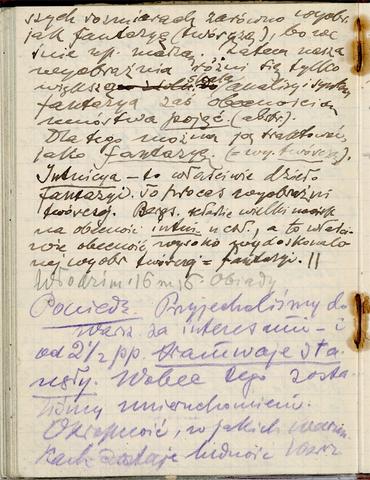 szych rozmiarach zarówno wyobr.
jak fantazyą (twórczą), bo rec
śnie np. marzą. Zatem nasza
wyobraźnia różni się tylko
większą skalą analizy i syntezy
fantazya zaś obecnością
mnóstwa pojęć (abstr.).
Dlatego można ją traktować
jako fantazyę. (= wy. twórczą).
Intuicya – to właściwie dzieło
fantazyi. To proces wyobraźni
twórczej. Bergs. kładzie wielki nacisk
na obecność intui. u czł., a to właści-
wie obecność wysoko wydoskonalo-
nej wyobr. twórczej = fantazyi. ||
Włodzim. 16 m 15. Obiady
Poniedz. Przyjechaliśmy do
Warsz. za interesami – i
od 2 1/2 pp. tramwaje sta-
nęły. Wobec tego zosta-
liśmy unieruchomieni.
Okropność, w jakich warun-
kach zostaje ludność Warsz